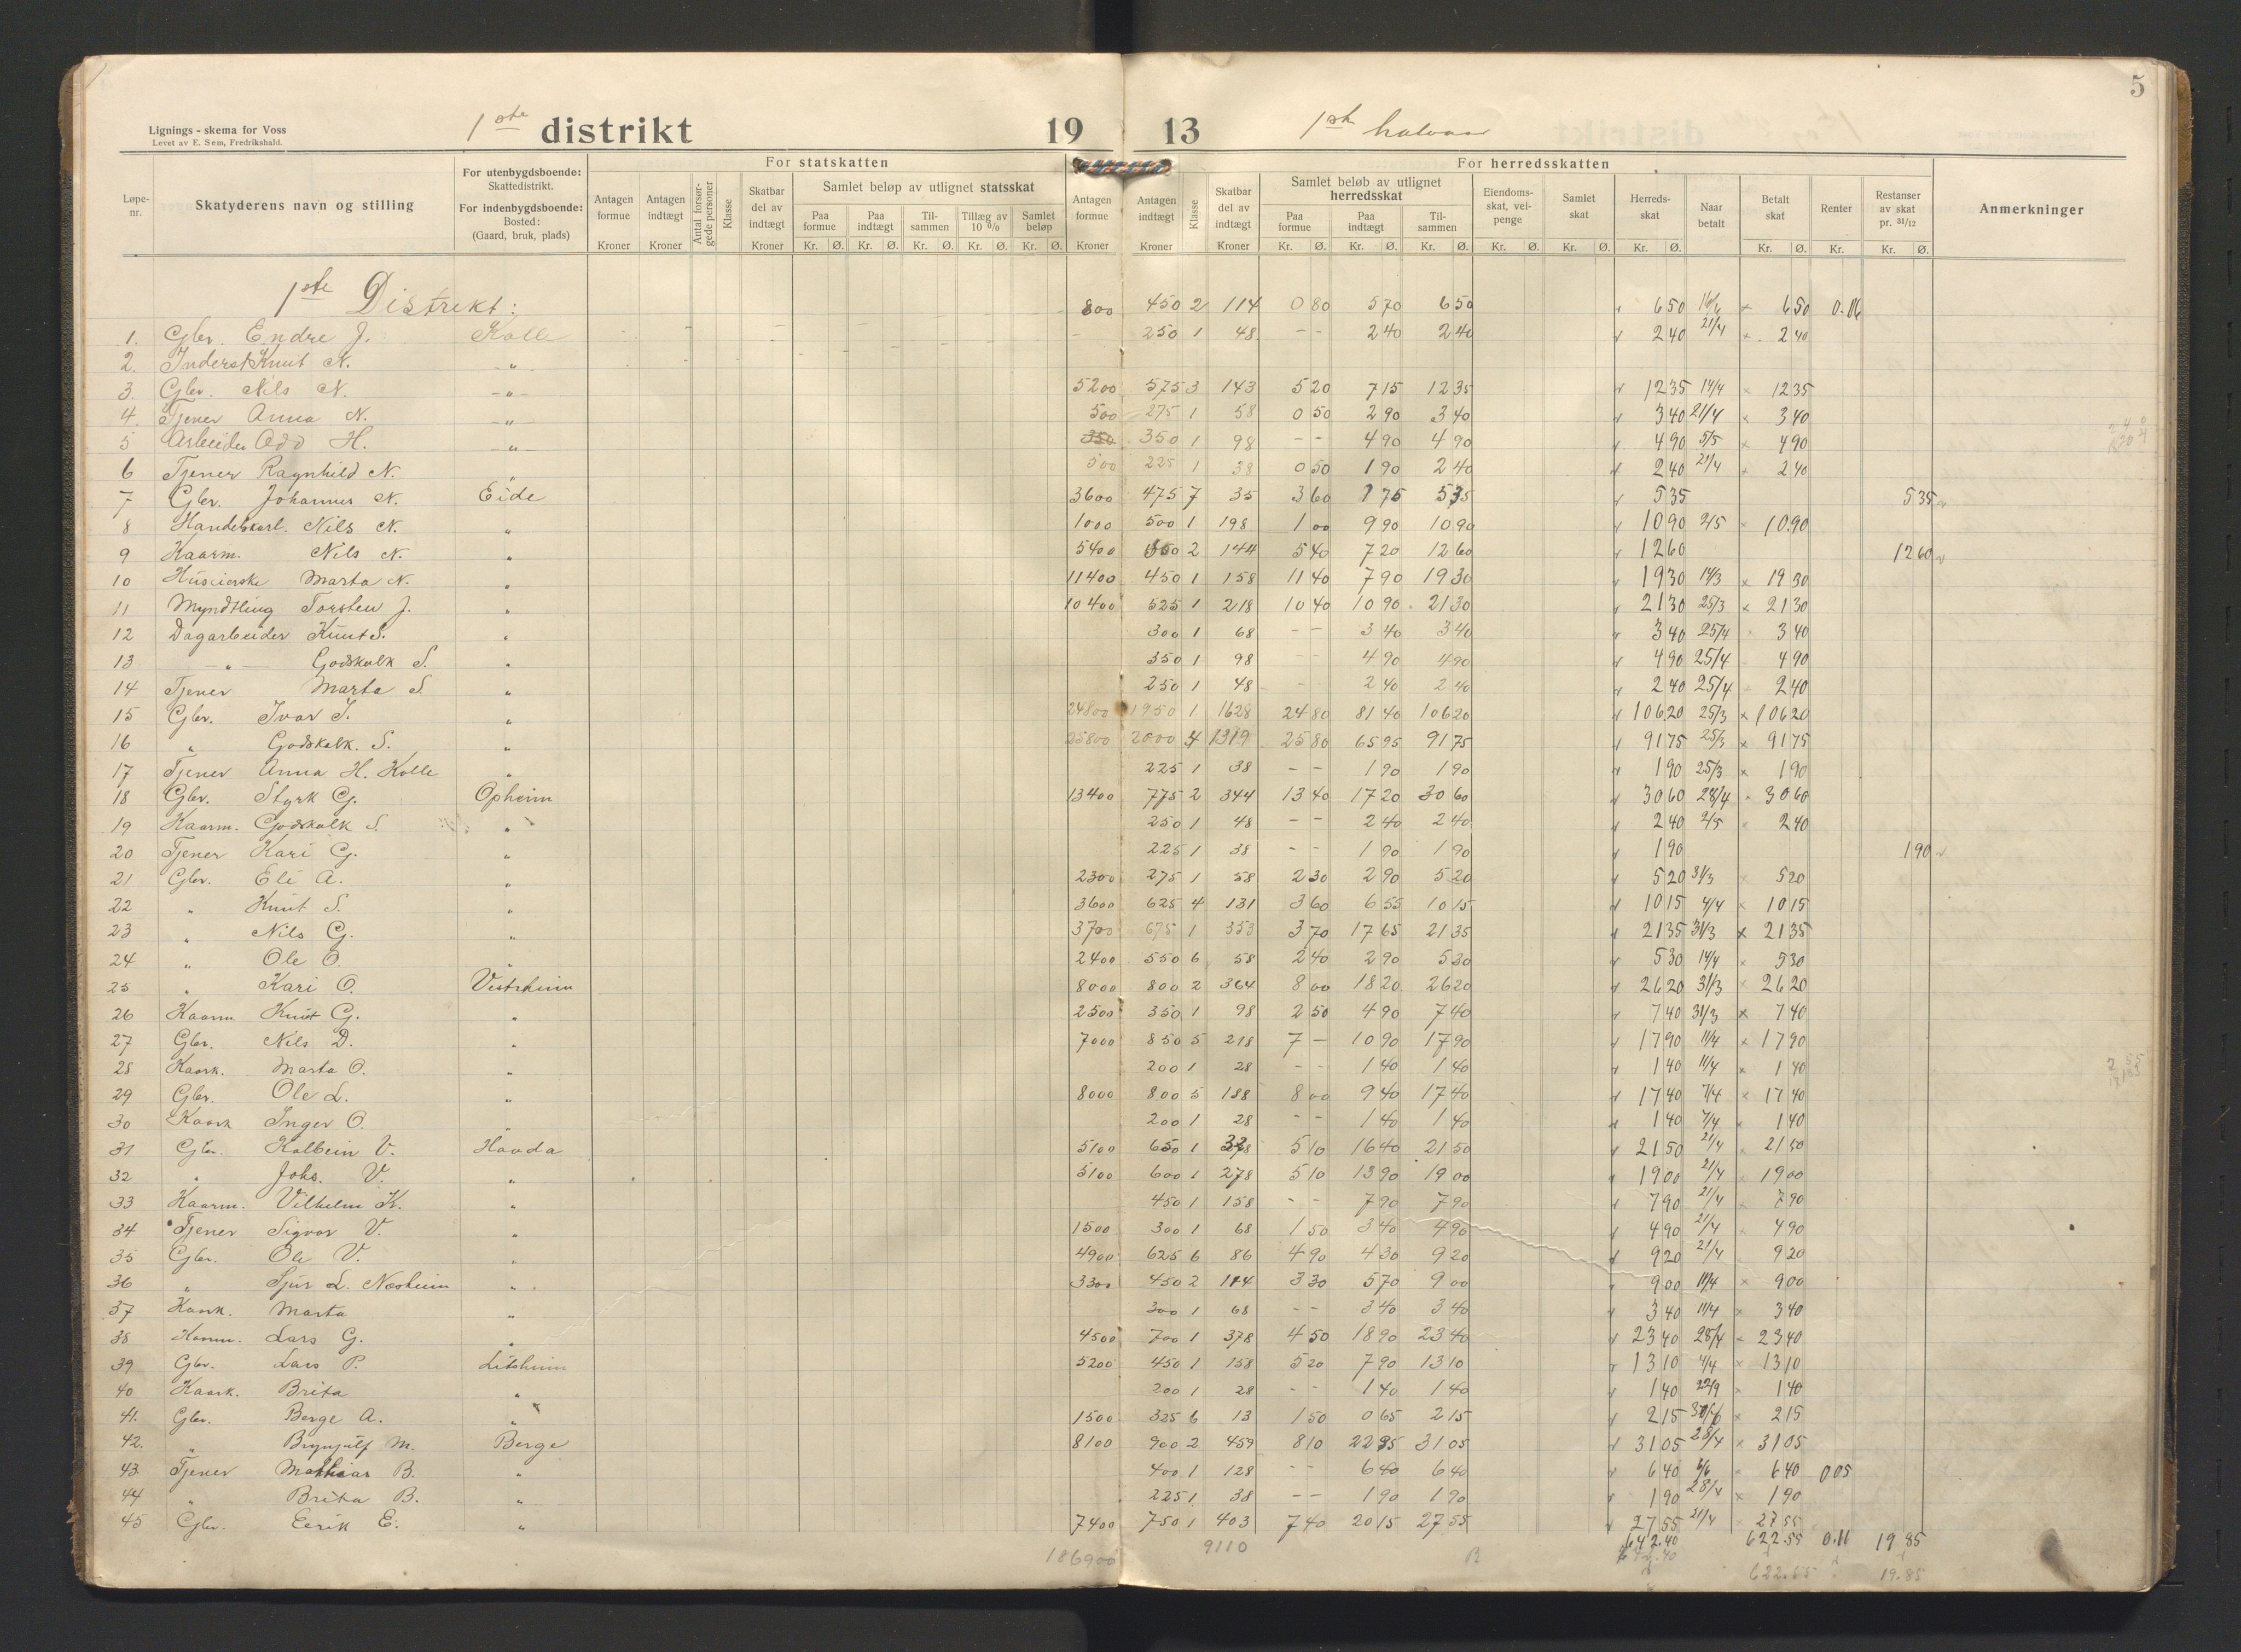 5
Lignings - skema for Voss
Levet av E. Sem, Fredrikshald.
1ste distrikt 19 13 1ste halvaar
For statskatten For herredsskatten
Løpe-nr. Skatyderens navn og stilling For utenbygdsboende: Skattedistrikt. For indenbygdsboende: Bosted: (Gaard, bruk, plads) Antagen formue Kroner Antagen indtægt Kroner Antal forsør-gede personer Klasse Skatbar del av indtægt Kroner Samlet beløp av utlignet statsskat Paa formue Kr. Ø. Paa indtægt Kr. Ø. Til-sammen Kr. Ø. Tillæg av 10 % Kr. Ø. Samlet beløp Kr. Ø. Antagen formue Kroner Antagen indtægt Kroner Klasse Skatbar del av indtægt Kroner Samlet beløb av utlignet herredsskat Paa formue Kr. Ø. Paa indtægt Kr. Ø. Til-sammen Kr. Ø. Eiendoms-skat, vei-penge Kr. Ø. Samlet skat Kr. Ø. Herreds-skat Kr. Ø. Naar betalt Betalt skat Kr. Ø. Renter Kr. Restanser av skat pr. 31/12 Kr. Ø. Anmerkninger
1ste Distrikt:
1. Gbr. Endre J. Kolle 800 450 2 114 0 80 5 70 6 50 6 50 6 50 0.16
2. Inderst Knut N. " 250 1 48 - - 2 40 2 40 2 40 21/4 2 40
3. Gbr. Nils N. " 5200 575 3 143 5 20 7 15 12 35 12 35 14/4 12 35
4. Tjener Anna N. " 500 275 1 58 0 50 2 90 3 40 3 40 21/4 3 40
5 Arbeider Odd H. " 350 1 98 - - 4 90 4 90 4 90 5/5 4 90
6 Tjener Ragnhild N. " 500 225 1 38 0 50 1 90 2 40 2 40 21/4 2 40
7 Gbr. Johannes N. Eide 3600 475 7 35 3 60 1 75 5 35 5 35 5 35
8 Handelskarl. Nils N. " 1000 500 1 198 1 00 9 90 10 90 10 90 2/5 10.90
9 Kaarm. Nils N. " 5400 2 144 5 40 7 20 12 60 12 60 12 60
10 Huseierske Marta N. " 11400 450 1 158 11 40 7 90 19 30 19 30 14/3 19 30
11 Myndtling Torsten J. " 10400 525 1 218 10 40 10 90 21 30 21 30 25/3 21 30
12 Dagarbeider Knut S. " 300 1 68 - - 3 40 3 40 3 40 25/4 3 40
13 — " — Godskalk S. " 350 1 98 - - 4 90 4 90 4 90 25/4 4 90
14 Tjener Marta S. " 250 1 48 - - 2 40 2 40 2 40 25/4 2 40
15 Gbr. Ivar I. " 24800 1950 1 1628 24 80 81 40 106 20 106 20 25/3 106 20
16 " Godskalk. S. " 25800 2000 4 1319 25 80 65 95 91 75 91 75 25/3 91 75
17 Tjener Anna H. Kolle " 225 1 38 - - 1 90 1 90 1 90 25/3 1 90
18 Gbr. Styrk G. Opheim 13400 775 2 344 13 40 17 20 30 60 30 60 28/4 30 60
19 Kaarm. Godskalk S. " 250 1 48 - - 2 40 2 40 2 40 2/5 2 40
20 Tjener Kari G. " 225 1 38 - - 1 90 1 90 1 90 1 90
21 Gbr. Eli A. " 2300 275 1 58 2 30 2 90 5 20 5 20 31/3 5 20
22 " Knut S. " 3600 625 4 131 3 60 6 55 10 15 10 15 4/4 10 15
23 " Nils G. " 3700 675 1 353 3 70 17 65 21 35 21 35 31/3 21 35
24 " Ole O. " 2400 550 6 58 2 40 2 90 5 30 5 30 14/4 5 30
25 " Kari O. Vestrheim 8000 800 2 364 8 00 18 20 26 20 26 20 31/3 26 20
26 Kaarm Knut G. " 2500 350 1 98 2 50 4 90 7 40 7 40 31/3 7 40
27 Gbr. Nils D. " 7000 850 5 218 7 - 10 90 17 90 17 90 11/4 17 90
28 Kaark. Marta O. " 200 1 28 - - 1 40 1 40 1 40 11/4 1 40
29 Gbr. Ole L. " 8000 800 5 188 8 00 9 40 17 40 17 40 7/4 17 40
30 Kaark Inger O. " 200 1 28 - - 1 40 1 40 1 40 7/4 1 40
31 Gbr. Kolbein V. Haada 5100 650 1 5 10 16 40 21 50 21 50 21/4 21 50
32 " Johs. V. " 5100 600 1 278 5 10 13 90 19 00 19 00 21/4 19 00
33 Kaarm. Vilhelm K. " 450 1 158 - - 7 90 7 90 7 90 21/4 7 90
34 Tjener Sigvor V. " 1500 300 1 68 1 50 3 40 4 90 4 90 21/4 4 90
35 Gbr. Ole V. " 4900 625 6 86 4 90 4 30 9 20 9 20 21/4 9 20
36 " Sjur L. Næsheim " 3300 450 2 114 3 30 5 70 9 00 9 00 11/4 9 00
37 Kaark. Marta " 300 1 68 - - 3 40 3 40 3 40 11/4 3 40
38 Kaarm. Lars G. " 4500 700 1 378 4 50 18 90 23 40 23 40 28/4 23 40
39 Gbr. Lars P. Litsheim 5200 450 1 158 5 20 7 90 13 10 13 10 4/4 13 10
40 Kaark. Brita " 200 1 28 - - 1 40 1 40 1 40 22/9 1 40
41. Gbr. Berge A. " 1500 325 6 13 1 50 0 65 2 15 2 15 30/6 2 15
42. " Brynjulf M. Berge 8100 900 2 459 8 10 22 95 31 05 31 05 28/4 31 05
43. Tjener Mathias B. " 400 1 128 - - 6 40 6 40 6 40 6/6 6 40 0 05
44 " Brita B. " 225 1 38 - - 1 90 1 90 1 90 28/4 1 90
45 Gbr. Eerik E. " 7400 750 1 403 7 40 20 15 27 55 27 55 21/4 27 55
642.40 622.55 0.11 19 85
186900 9110 642.40
622.55 19.85